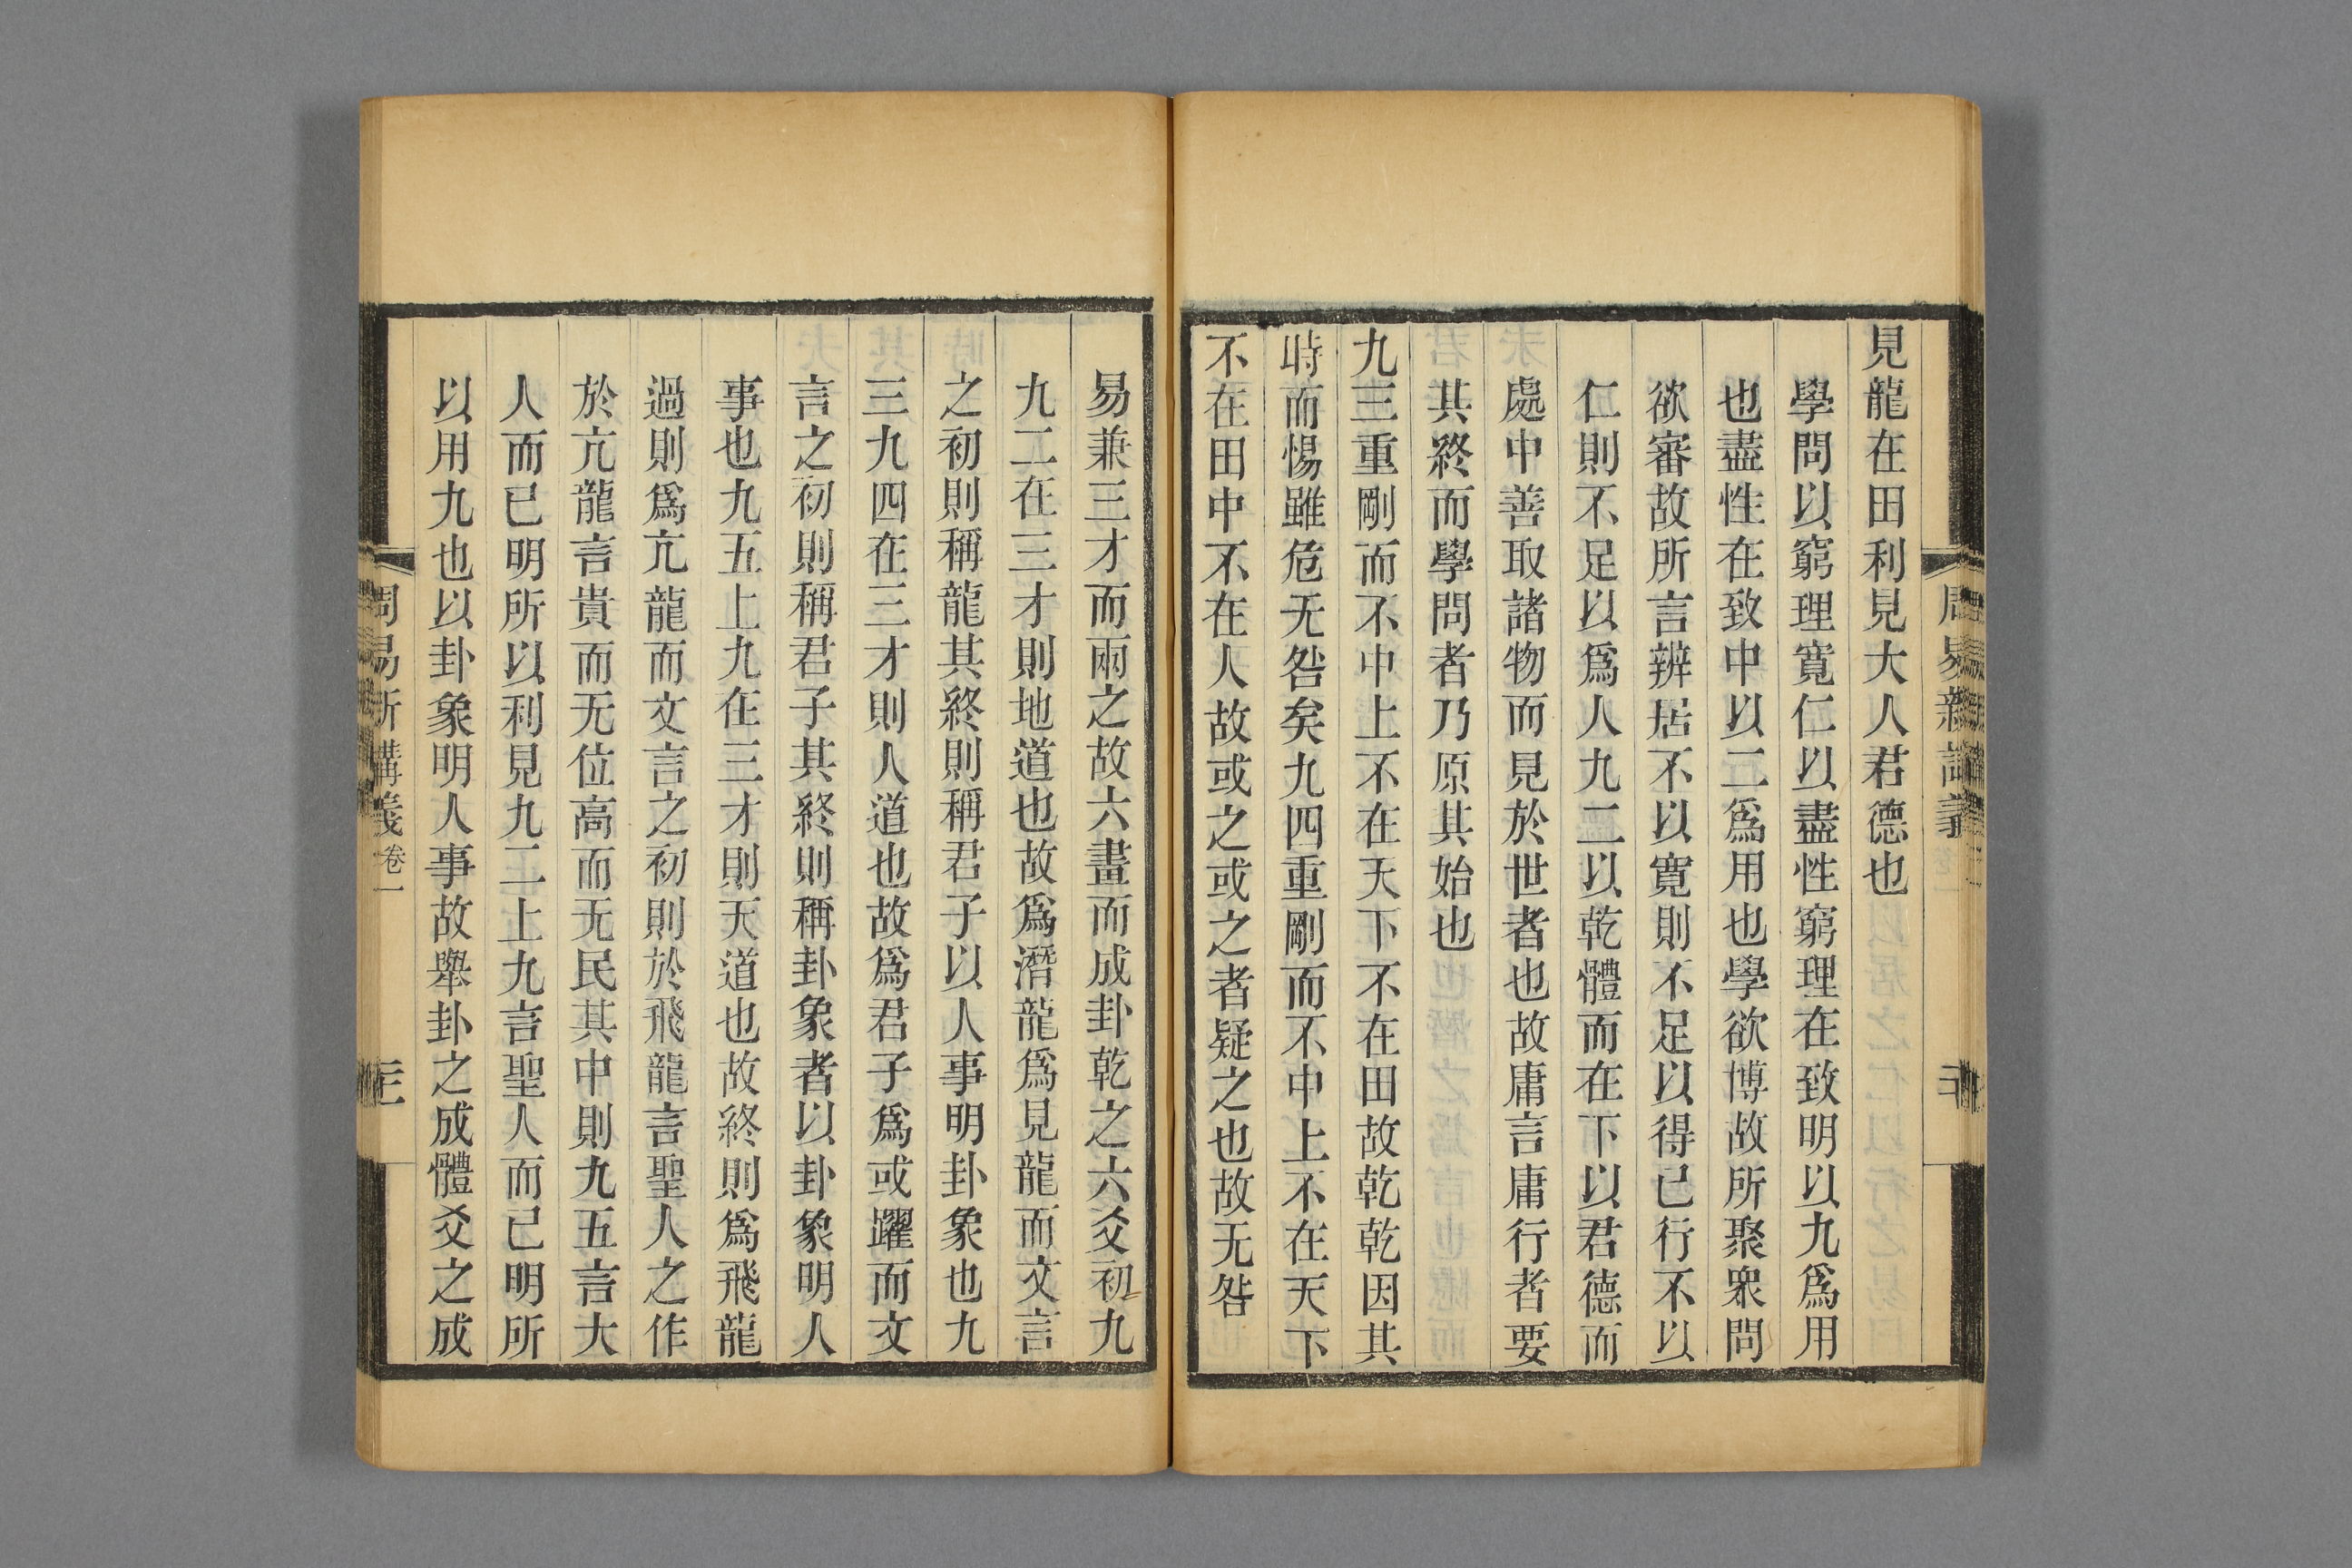 見龍在田利見大人君德也
學問以窮理寬仁以盡性窮理在致明以九爲用
也盡性在致中以二爲用也學欲博故所聚衆問
欲審故所言辨居不以寬則不足以得已行不以
仁則不足以爲人九二以乾體而在下以君德而
處中善取諸物而見於世者也故庸言庸行者要
其終而學問者乃原其始也
九三重剛而不中上不在天下不在田故乾乾因其
時而惕雖危无咎矣九四重剛而不中上不在天下
不在田中不在人故或之或之者疑之也故无咎
易兼三才而兩之故六畫而成卦乾之六爻初九
九二在三才則地道也故爲潛龍爲見龍而文言
之初則稱龍其終則稱君子以人事明卦象也九
三九四在三才則人道也故爲君子爲或躍而文
言之初則稱君子其終則稱卦象者以卦象明人
事也九五上九在三才則天道也故終則爲飛龍
過則爲亢龍而文言之初則於飛龍言聖人之作
於亢龍言貴而无位高而无民其中則九五言大
人而已明所以利見九二上九言聖人而已明所
以用九也以卦象明人事故舉卦之成體爻之成
周易新講義 卷一